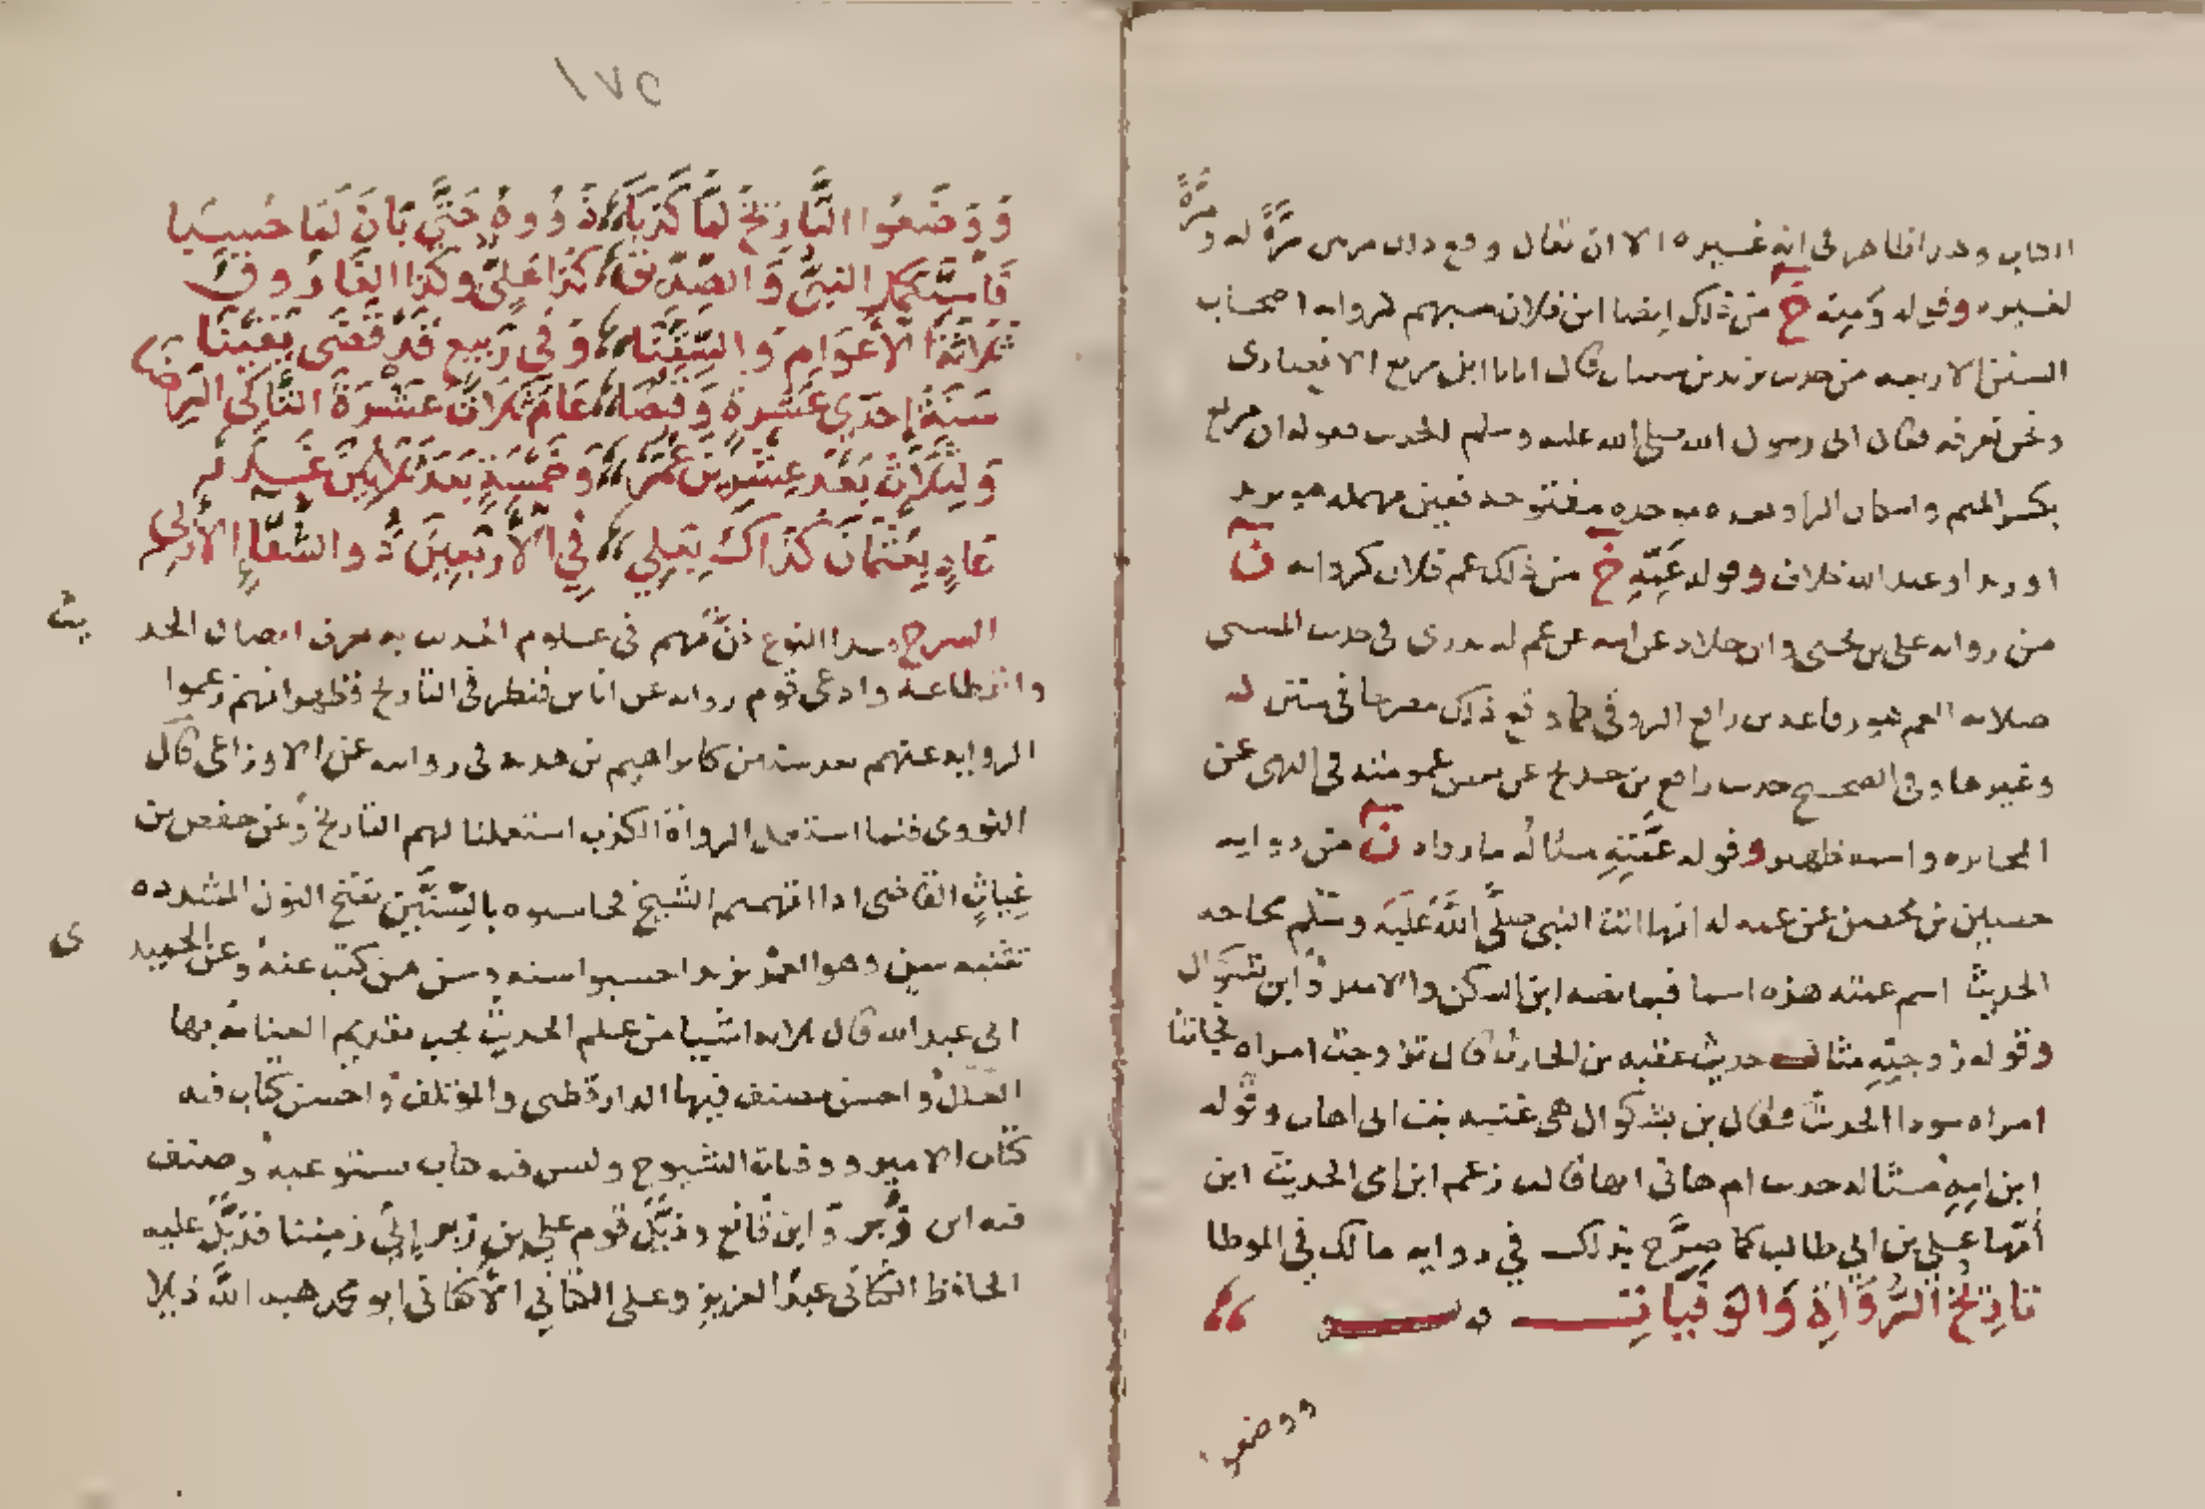 الباب وهذا الظاهر في انه غيره الا ان يقال وقع ذلك مرتين مرة له ومرة
لغيره وقوله وعمه خ من ذلك ايضا ابن فلان مبهم كرواية اصحاب
السنن الاربعه من حديث يزيد بن سنان قال اتانا ابن مربع الانصاري
ونحن بعرفه فقال اني رسول رسول الله صلى الله عليه وسلم الحديث فقوله ابن مربع
بكسر الميم واسكان الراء وبعده موحده مفتوحه فعين مهمله هو يزيد
او زيد او عبد الله خلاف وقوله عمه خ من ذلك عم فلان كرواية ن
من رواية علي بن يحيى بن خلاد عن ابيه عن عم له بدري في حديث المسيء
صلاته العم هو رفاعه بن رافع الزرقي كما وقع ذلك مصرحا في سنن له
وغيرها وفي الصحيح حديث رافع بن خديج عن بعض عمومته في النهي عن
المخابره واسمه ظهير وقوله عمته مثاله ما رواه ن من رواية
حسين بن محصن عن عمه له انها اتت النبي صلى الله عليه وسلم لحاجه
الحديث اسم عمته هذه اسما فيما نصه ابن السكن والامير وابن بشكوال
وقوله زوجته مثاله حديث عقبه بن الحارث قال تزوجت امراه فجاتنا
امراه سودا الحديث فقال بن بشكوال هي غنيه بنت ابي اهاب وقوله
ابن امه مثاله حديث ام هاني انها قالت زعم ابن امي الحديث ابن
أمها علي بن ابي طالب كما صرح بذلك في رواية مالك في الموطا
تاريخ الرواة والوفيات
ووضعوا
١٧٥
ووضعوا التاريخ لما كذبا ذووه حتى بان لما حسبا
فاستكمل النبي والصديق كذا علي وكذا الفاروق
ثلاثة الاعوام والستينا وفي ربيع قد قضى يقينا
سنة احدى عشرة وقبضا عام ثلاث عشرة التالي الرضى
ولثلاث بعد عشرين عمر وخمسة بعد ثلاثين غدر
عاد بعثمان كذاك بعلي في الاربعين ذو الشقاء الازلي
الشرح هذا النوع فن مهم في علوم الحديث به يعرف اتصال الحديث
وانقطاعه وادعى قوم رواية عن اناس فنظر في التاريخ فظهر انهم زعموا
الرواية عنهم بعد سنين كابراهيم بن هدبه في روايته عن الاوزاعي قال
الثوري فلما استعمل الرواة الكذب استعملنا لهم التاريخ وعن حفص بن
غياث القاضي اذا اتهمتم الشيخ فحاسبوه بالسنين بفتح النون المشدده
تثنيه سن وهو العمر يريد احسبوا سنه وسن من كتب عنه وعن الحميدي
ابي عبد الله قال ثلاثه اشيا من علم الحديث يجب تقديم العنايه بها
العلل واحسن مصنف فيها الدارقطني والمؤتلف واحسن كتاب فيه
كتاب الامير ووفيات الشيوخ وليس فيه كتاب يستوعبه وصنف
فيه ابن زبر وابن قانع وذيل قوم على بن زبر إلى زمننا فذيل عليه
الحافظ الكتاني عبد العزيز وعلى الكتاني الاكفاني ابو محمد هبة الله ذيلا